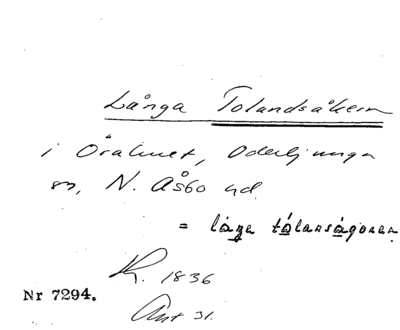 Långa Tolandsåkern
i Öralmet, Oderljunga
sn, N. Åsbo hd.
= låŋa tålansågoren
R. 1836
Nr 7294.
Ant 31.